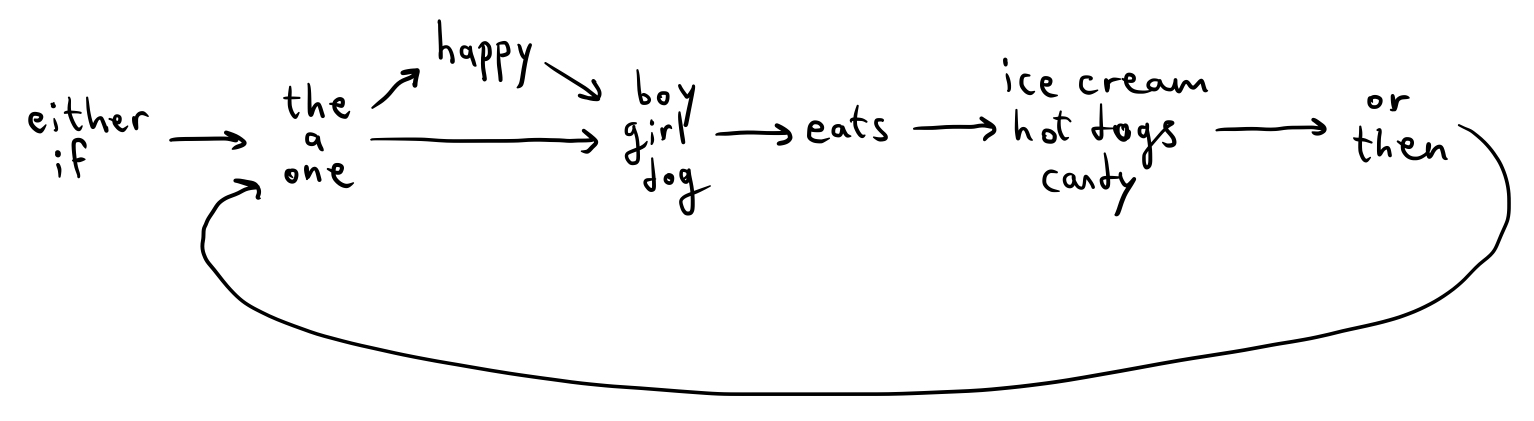 either
if
the
a
one
happy
boy
girl
dog
eats
ice cream
hot dogs
candy
or
then